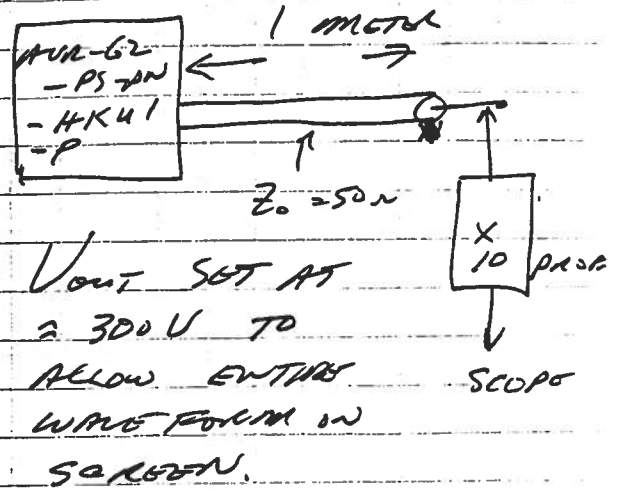 1 METER
AVR-G2
-PS-PN
-HKU1
-P
Z₀ = 50 Ω
X
10 PROBE
SCOPE
VOUT SET AT
≈ 300V TO
ALLOW ENTIRE
WAVEFORM ON
SCREEN.